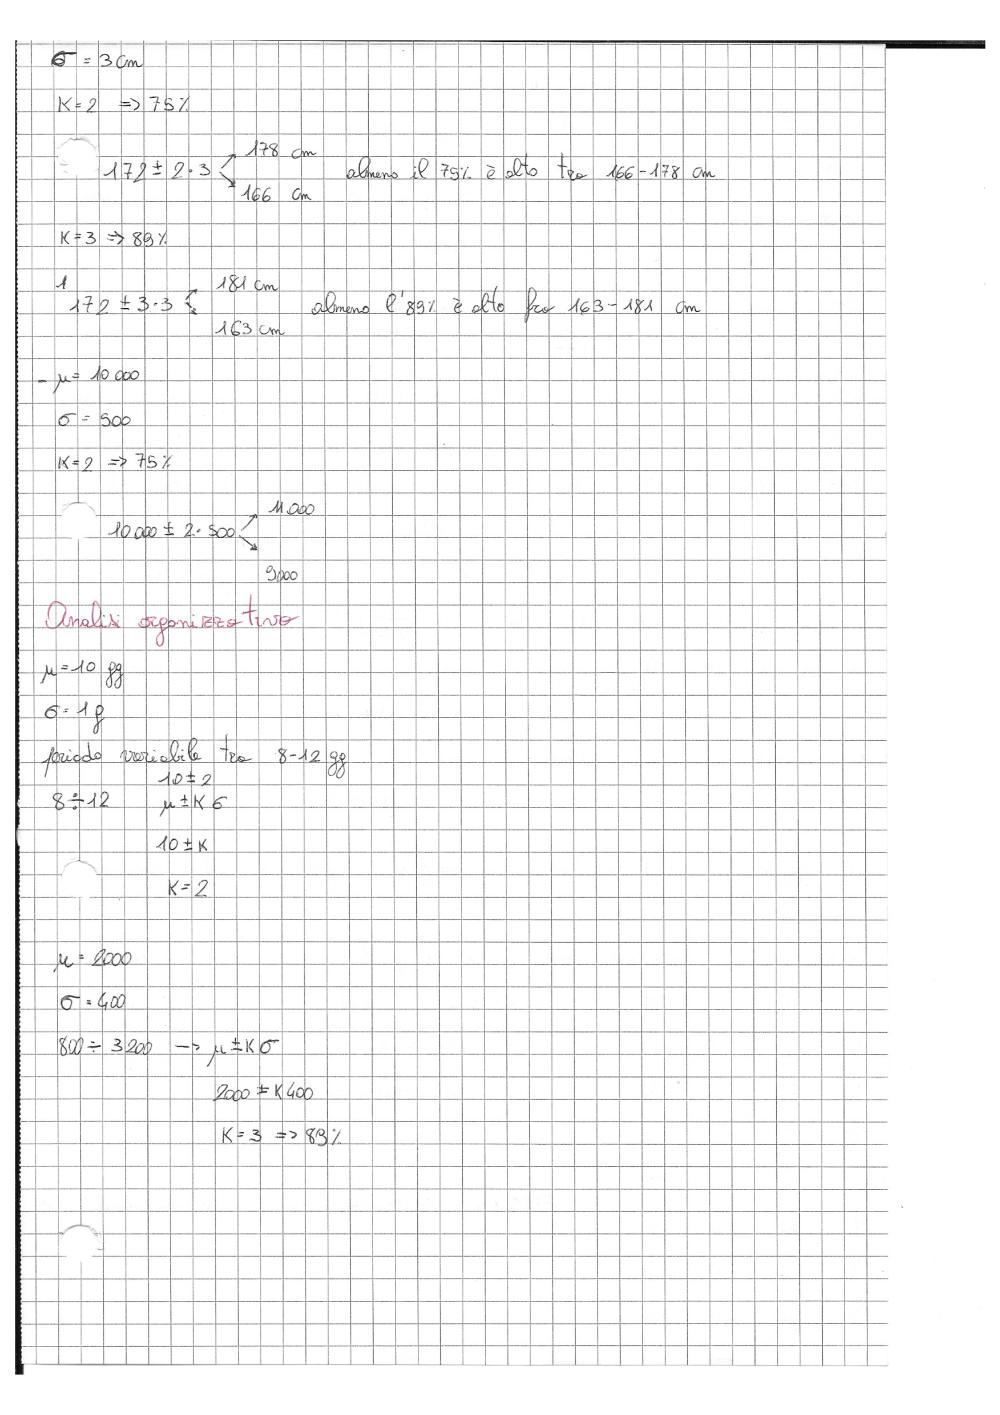 σ = 3 cm
K = 2 => 75%
178 cm
172 ± 2·3 almeno il 75% è alto tra 166-178 cm
166 cm
K = 3 => 89%
1 181 cm
172 ± 3·3 almeno l'89% è alto fra 163-181 cm
163 cm
- μ = 10 000
σ = 500
K = 2 => 75%
11.000
10 000 ± 2·500
9000
Analisi organizzativa
μ = 10 gg
σ = 1 g
periodo variabile tra 8-12 gg
10 ± 2
8 ÷ 12 μ ± K σ
10 ± K
K = 2
μ = 2000
σ = 400
800 ÷ 3200 -> μ ± K σ
2000 ± K 400
K = 3 => 89%